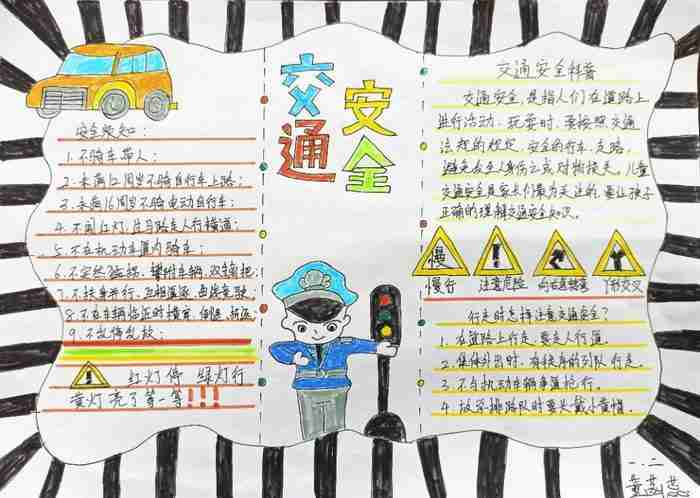 交通
安全
安全须知:
1.不骑车带人;
2.未满12周岁不骑自行车上路;
3.未满16周岁不骑电动自行车;
4.不闯红灯,过马路走人行横道;
5.不在机动车道内骑车;
6.不突然猛拐、攀附车辆、双手离把;
7.不扶身并行、互相追逐、曲折竞驶。
8.不在车辆临近时横穿、倒退、折返
9.不乱停乱放;
红灯停 绿灯行
黄灯亮了等一等!!!
交通安全科普
交通安全,是指人们在道路上
进行活动、玩耍时,要按照交通
法规的规定,安全的行车、走路,
避免发生人身伤亡或对物损失。儿童
交通安全是家长们最为关注的,要让孩子
正确的理解交通安全知识。
慢
慢行
注意危险
向右急转弯
T形交叉
行走时怎样注意交通安全?
1.在道路上行走,要走人行道。
2.集体外出时,有秩序的列队行走。
3.不与机动车辆争道抢行。
4.放学排路队时要头戴小黄帽。
一.二